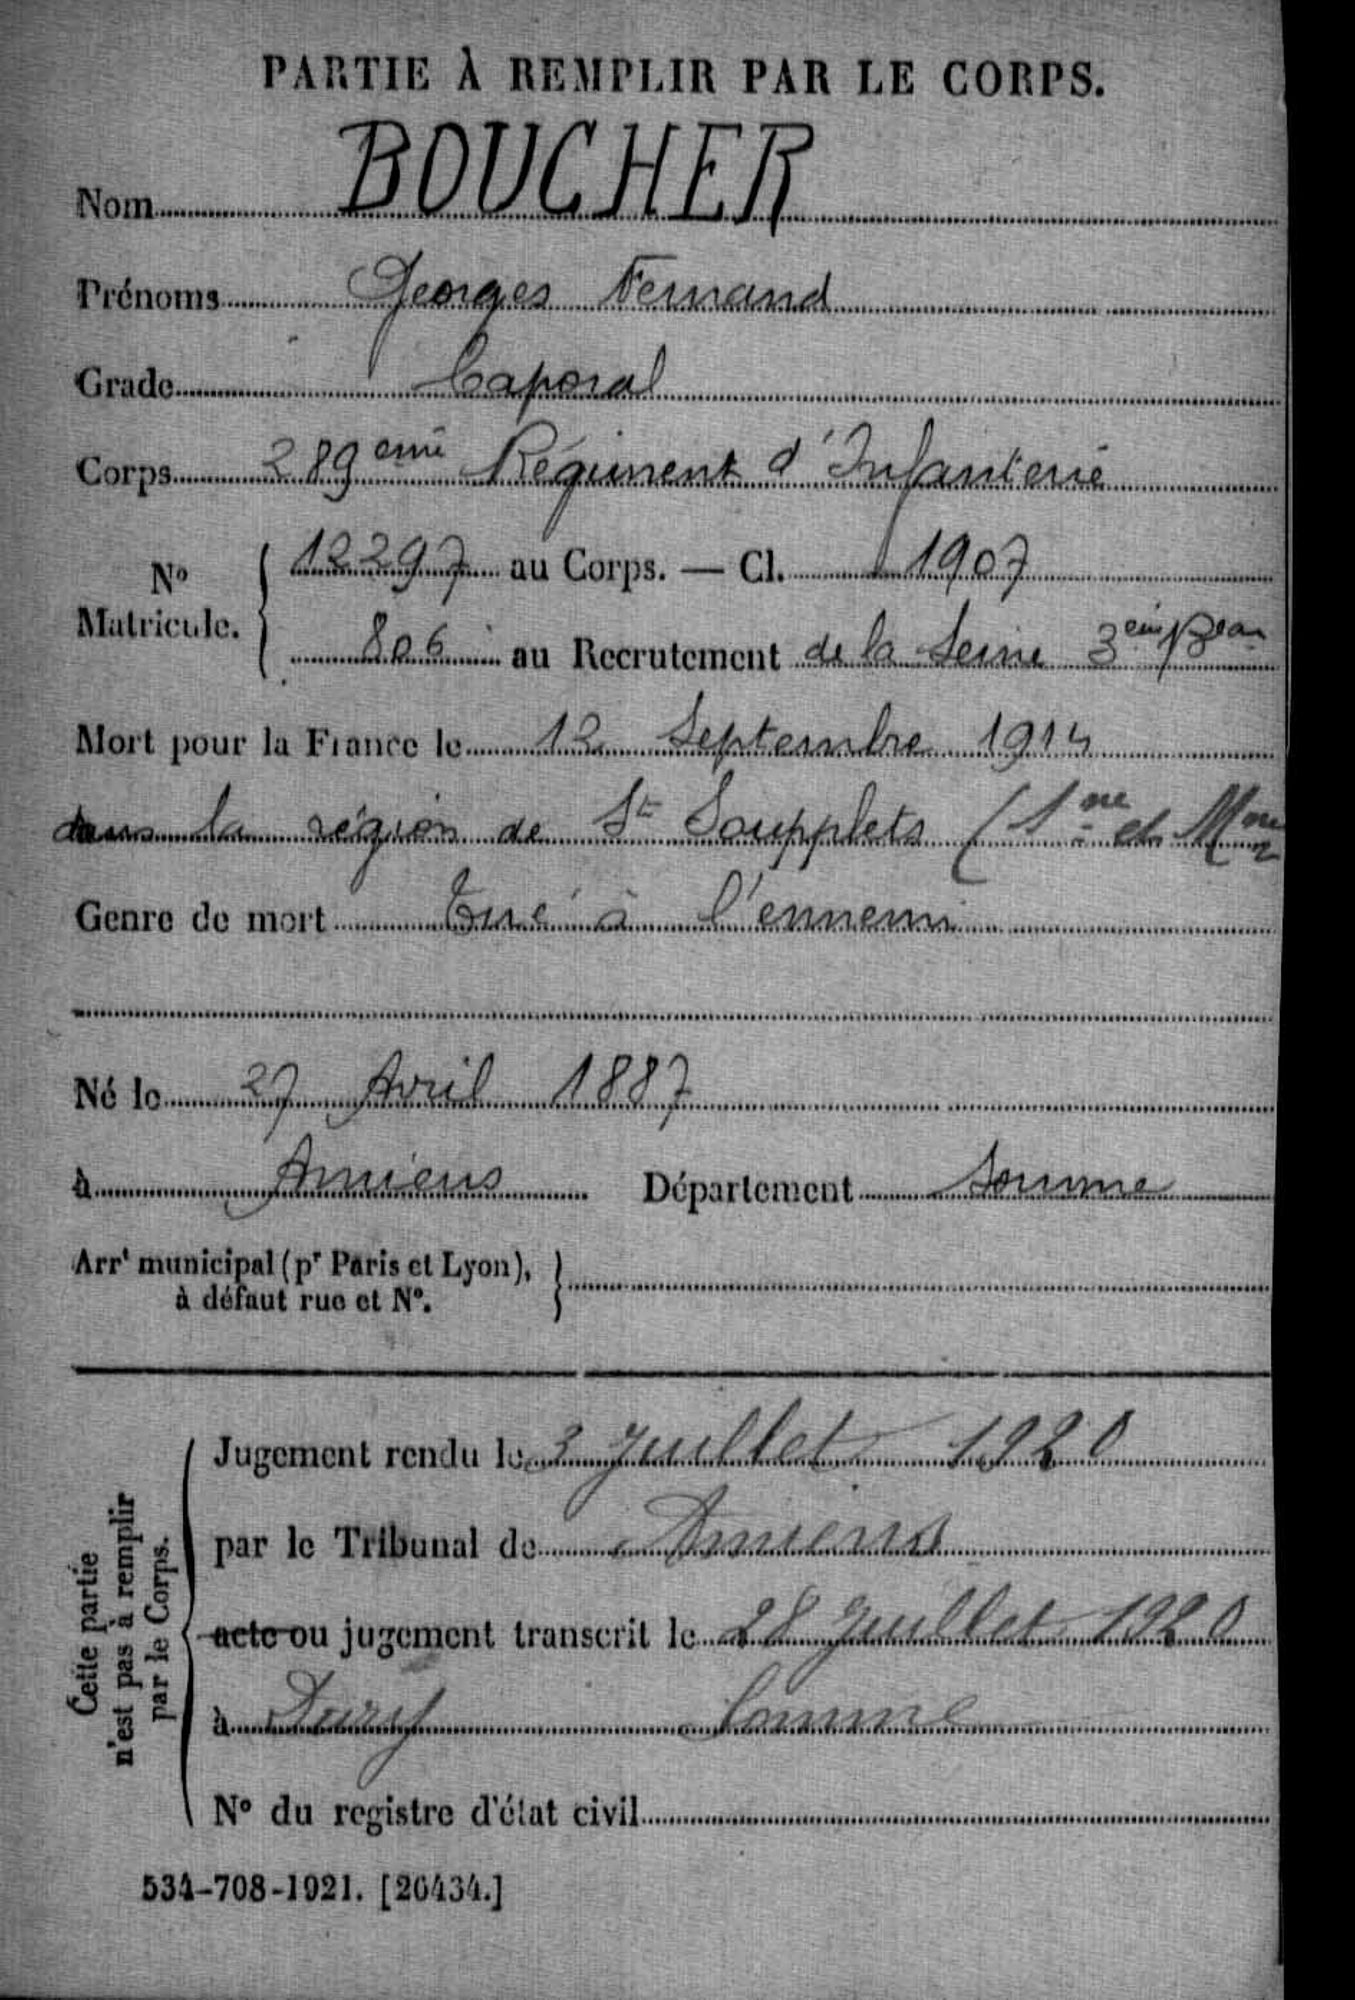 PARTIE À REMPLIR PAR LE CORPS.
Nom BOUCHER
Prénoms Georges Fernand
Grade Caporal
Corps 289eme Régiment d'Infanterie
No Matricule. 12297 au Corps. — Cl. 1907
806 au Recrutement de la Seine 3em Bean
Mort pour la France le 12 Septembre 1914
dans la région de St Soupplets (Sne et Mne
Genre de mort Tué à l'ennemi
Né le 27 Avril 1887
à Amiens Département Somme
Arrt municipal (pr Paris et Lyon),
à défaut rue et No.
Cette partie
n'est pas à remplir
par le Corps.
Jugement rendu le 3 Juillet 1920
par le Tribunal de Amiens
acte ou jugement transcrit le 28 Juillet 1920
à Dury Somme
No du registre d'état civil
534-708-1921. [26434.]